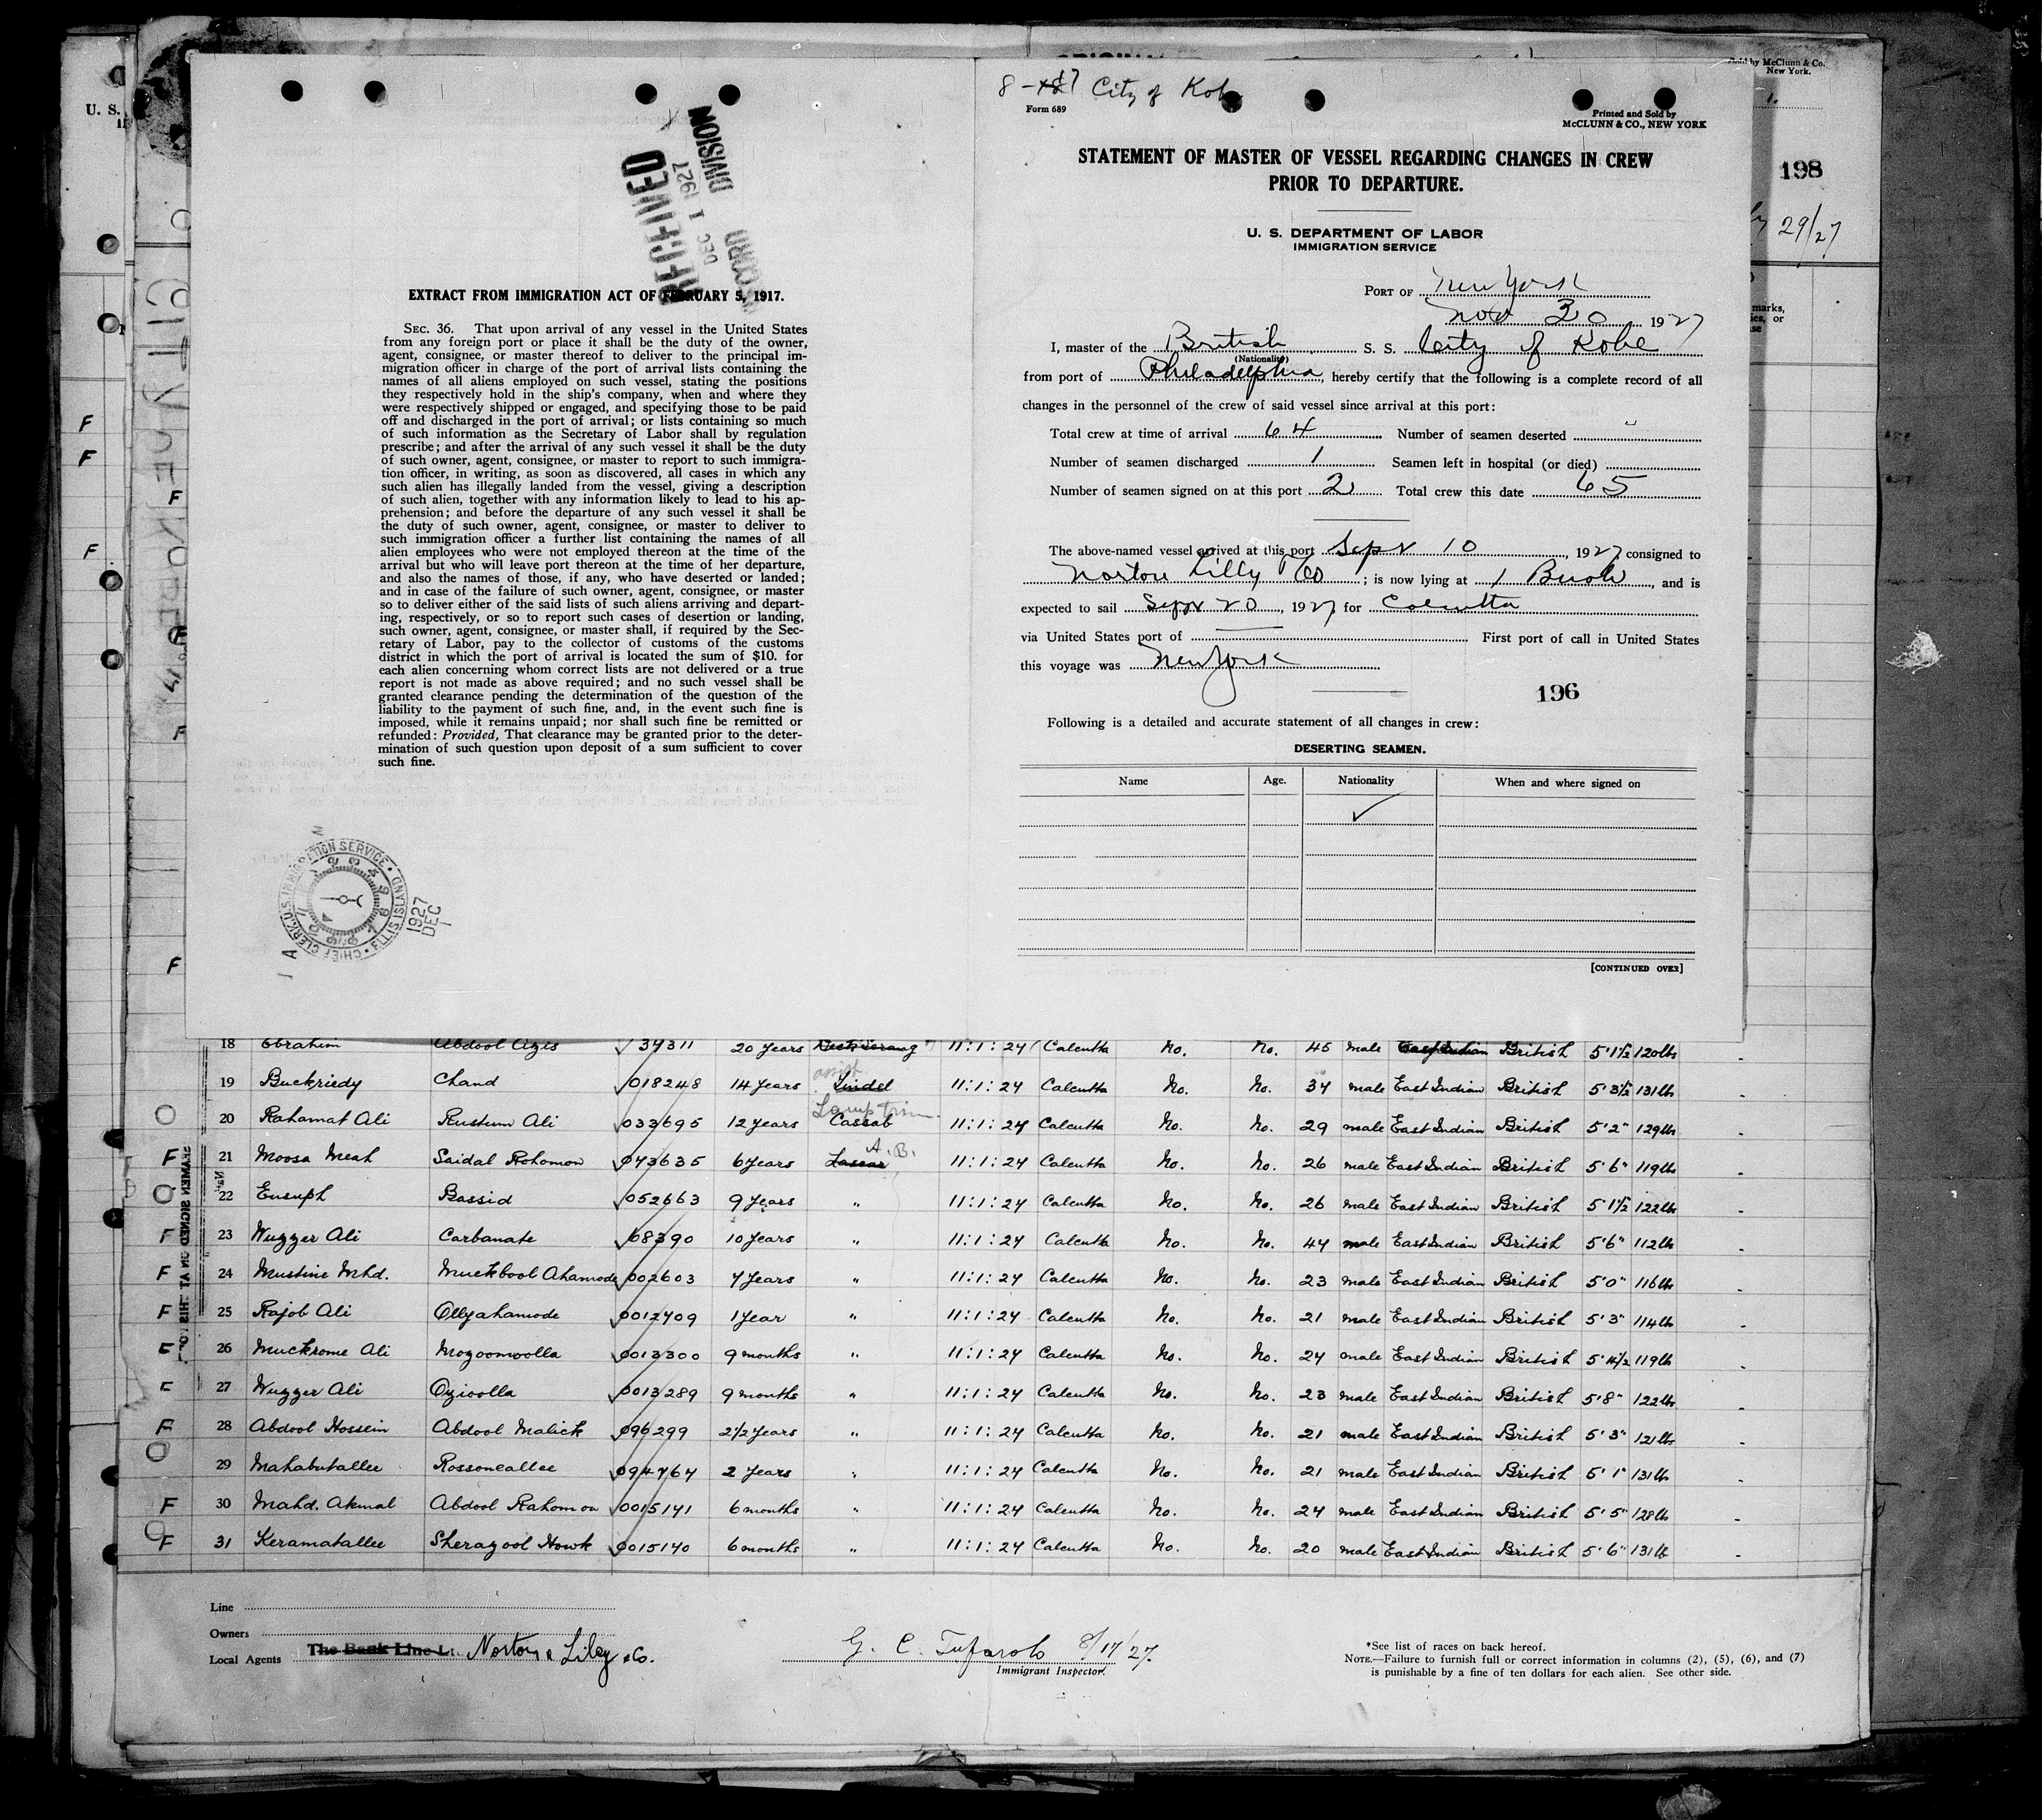 Sold by McClunn & Co.
New York.
U. S.
198
29/27
8-187 City of Kobe
Form 689
Printed and Sold by
McCLUNN & CO., NEW YORK
STATEMENT OF MASTER OF VESSEL REGARDING CHANGES IN CREW
PRIOR TO DEPARTURE.
U. S. DEPARTMENT OF LABOR
IMMIGRATION SERVICE
PORT OF New York
Nov 30 1927
I, master of the British S. S. City of Kobe
(Nationality)
from port of Philadelphia, hereby certify that the following is a complete record of all
changes in the personnel of the crew of said vessel since arrival at this port:
Total crew at time of arrival 64 Number of seamen deserted
Number of seamen discharged 1 Seamen left in hospital (or died)
Number of seamen signed on at this port 2 Total crew this date 65
The above-named vessel arrived at this port Sept 10, 1927, consigned to
Norton Lilly & Co; is now lying at 1 Bush, and is
expected to sail Sept 20, 1927, for Calcutta
via United States port of First port of call in United States
this voyage was New York
196
Following is a detailed and accurate statement of all changes in crew:
DESERTING SEAMEN.
Name Age. Nationality When and where signed on
[CONTINUED OVER]
RECORD DIVISION
DEC 1 1927
EXTRACT FROM IMMIGRATION ACT OF FEBRUARY 5, 1917.
SEC. 36. That upon arrival of any vessel in the United States
from any foreign port or place it shall be the duty of the owner,
agent, consignee, or master thereof to deliver to the principal im-
migration officer in charge of the port of arrival lists containing the
names of all aliens employed on such vessel, stating the positions
they respectively hold in the ship's company, when and where they
were respectively shipped or engaged, and specifying those to be paid
off and discharged in the port of arrival; or lists containing so much
of such information as the Secretary of Labor shall by regulation
prescribe; and after the arrival of any such vessel it shall be the duty
of such owner, agent, consignee, or master to report to such immigra-
tion officer, in writing, as soon as discovered, all cases in which any
such alien has illegally landed from the vessel, giving a description
of such alien, together with any information likely to lead to his ap-
prehension; and before the departure of any such vessel it shall be
the duty of such owner, agent, consignee, or master to deliver to
such immigration officer a further list containing the names of all
alien employees who were not employed thereon at the time of the
arrival but who will leave port thereon at the time of her departure,
and also the names of those, if any, who have deserted or landed;
and in case of the failure of such owner, agent, consignee, or master
so to deliver either of the said lists of such aliens arriving and depart-
ing, respectively, or so to report such cases of desertion or landing,
such owner, agent, consignee, or master shall, if required by the Sec-
retary of Labor, pay to the collector of customs of the customs
district in which the port of arrival is located the sum of $10. for
each alien concerning whom correct lists are not delivered or a true
report is not made as above required; and no such vessel shall be
granted clearance pending the determination of the question of the
liability to the payment of such fine, and, in the event such fine is
imposed, while it remains unpaid; nor shall such fine be remitted or
refunded: Provided, That clearance may be granted prior to the deter-
mination of such question upon deposit of a sum sufficient to cover
such fine.
CHIEF CLERK, U.S. IMMIGRATION SERVICE • ELLIS ISLAND
1927 DEC 1
18 Ebrahim Abdool Azis 34311 20 years Deck Serang 11:1:24 Calcutta No. No. 45 male East Indian British 5'1½ 120lbs
19 Buckriedy Chand 018248 14 years Tindel 11:1:24 Calcutta No. No. 34 male East Indian British 5'3½ 131lbs
20 Rahamat Ali Rustum Ali 033695 12 years Lamp trim. Cassab 11:1:24 Calcutta No. No. 29 male East Indian British 5'2" 129lbs
F 21 Moosa Meah Saidal Rohomon 043635 6 years Lascar A.B. 11:1:24 Calcutta No. No. 26 male East Indian British 5'6" 119lbs
22 Eusuph Bassid 052663 9 years " 11:1:24 Calcutta No. No. 26 male East Indian British 5'1½ 122lbs
F 23 Wuzzer Ali Carbanate 08390 10 years " 11:1:24 Calcutta No. No. 44 male East Indian British 5'6" 112lbs
F 24 Mustine Mhd. Muckbool Ahamode 002603 7 years " 11:1:24 Calcutta No. No. 23 male East Indian British 5'0" 116lbs
F 25 Rajob Ali Ollyahamode 0012409 1 year " 11:1:24 Calcutta No. No. 21 male East Indian British 5'3" 114lbs
F 26 Muckrome Ali Mozoomoolla 0013300 9 months " 11:1:24 Calcutta No. No. 24 male East Indian British 119lbs
F 27 Wuzzer Ali Ozioolla 0013289 9 months " 11:1:24 Calcutta No. No. 23 male East Indian British 5'8" 122lbs
F 28 Abdool Hossein Abdool Malick 096299 2½ years " 11:1:24 Calcutta No. No. 21 male East Indian British 5'3" 121lbs
29 Mahabutallee Rossoneallee 094764 2 years " 11:1:24 Calcutta No. No. 21 male East Indian British 5'1" 131lb
F 30 Mahd. Akmal Abdool Rahomon 0015141 6 months " 11:1:24 Calcutta No. No. 24 male East Indian British 5'5" 128lbs
F 31 Keramatallee Sherazool Howk 0015140 6 months " 11:1:24 Calcutta No. No. 20 male East Indian British 5'6" 131lb
Line
Owners
Local Agents The Bank Line L. Norton & Liley & Co.
G. C. Tufarolo 8/17/27.
Immigrant Inspector.
*See list of races on back hereof.
NOTE.—Failure to furnish full or correct information in columns (2), (5), (6), and (7)
is punishable by a fine of ten dollars for each alien. See other side.